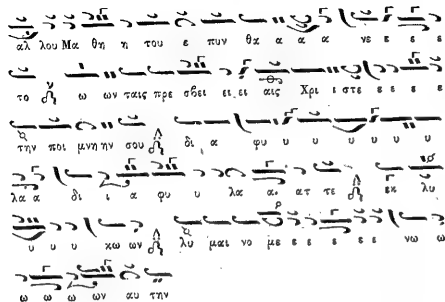 αλ λου Μα θη η του ε πυν θα α α α νε ε ε ε
το ω ων ταις πρε σβει ει ει αις Χρι ι στε ε ε ε ε
την ποι μνη ην σου δι α φυ υ υ υ υ υ υ
λα α δι ι α φυ υ λα α ατ τε εκ λυ
υ υ υ κω ων λυ μαι νο με ε ε ε ε ε νω ω
ω ω ω ων αυ την